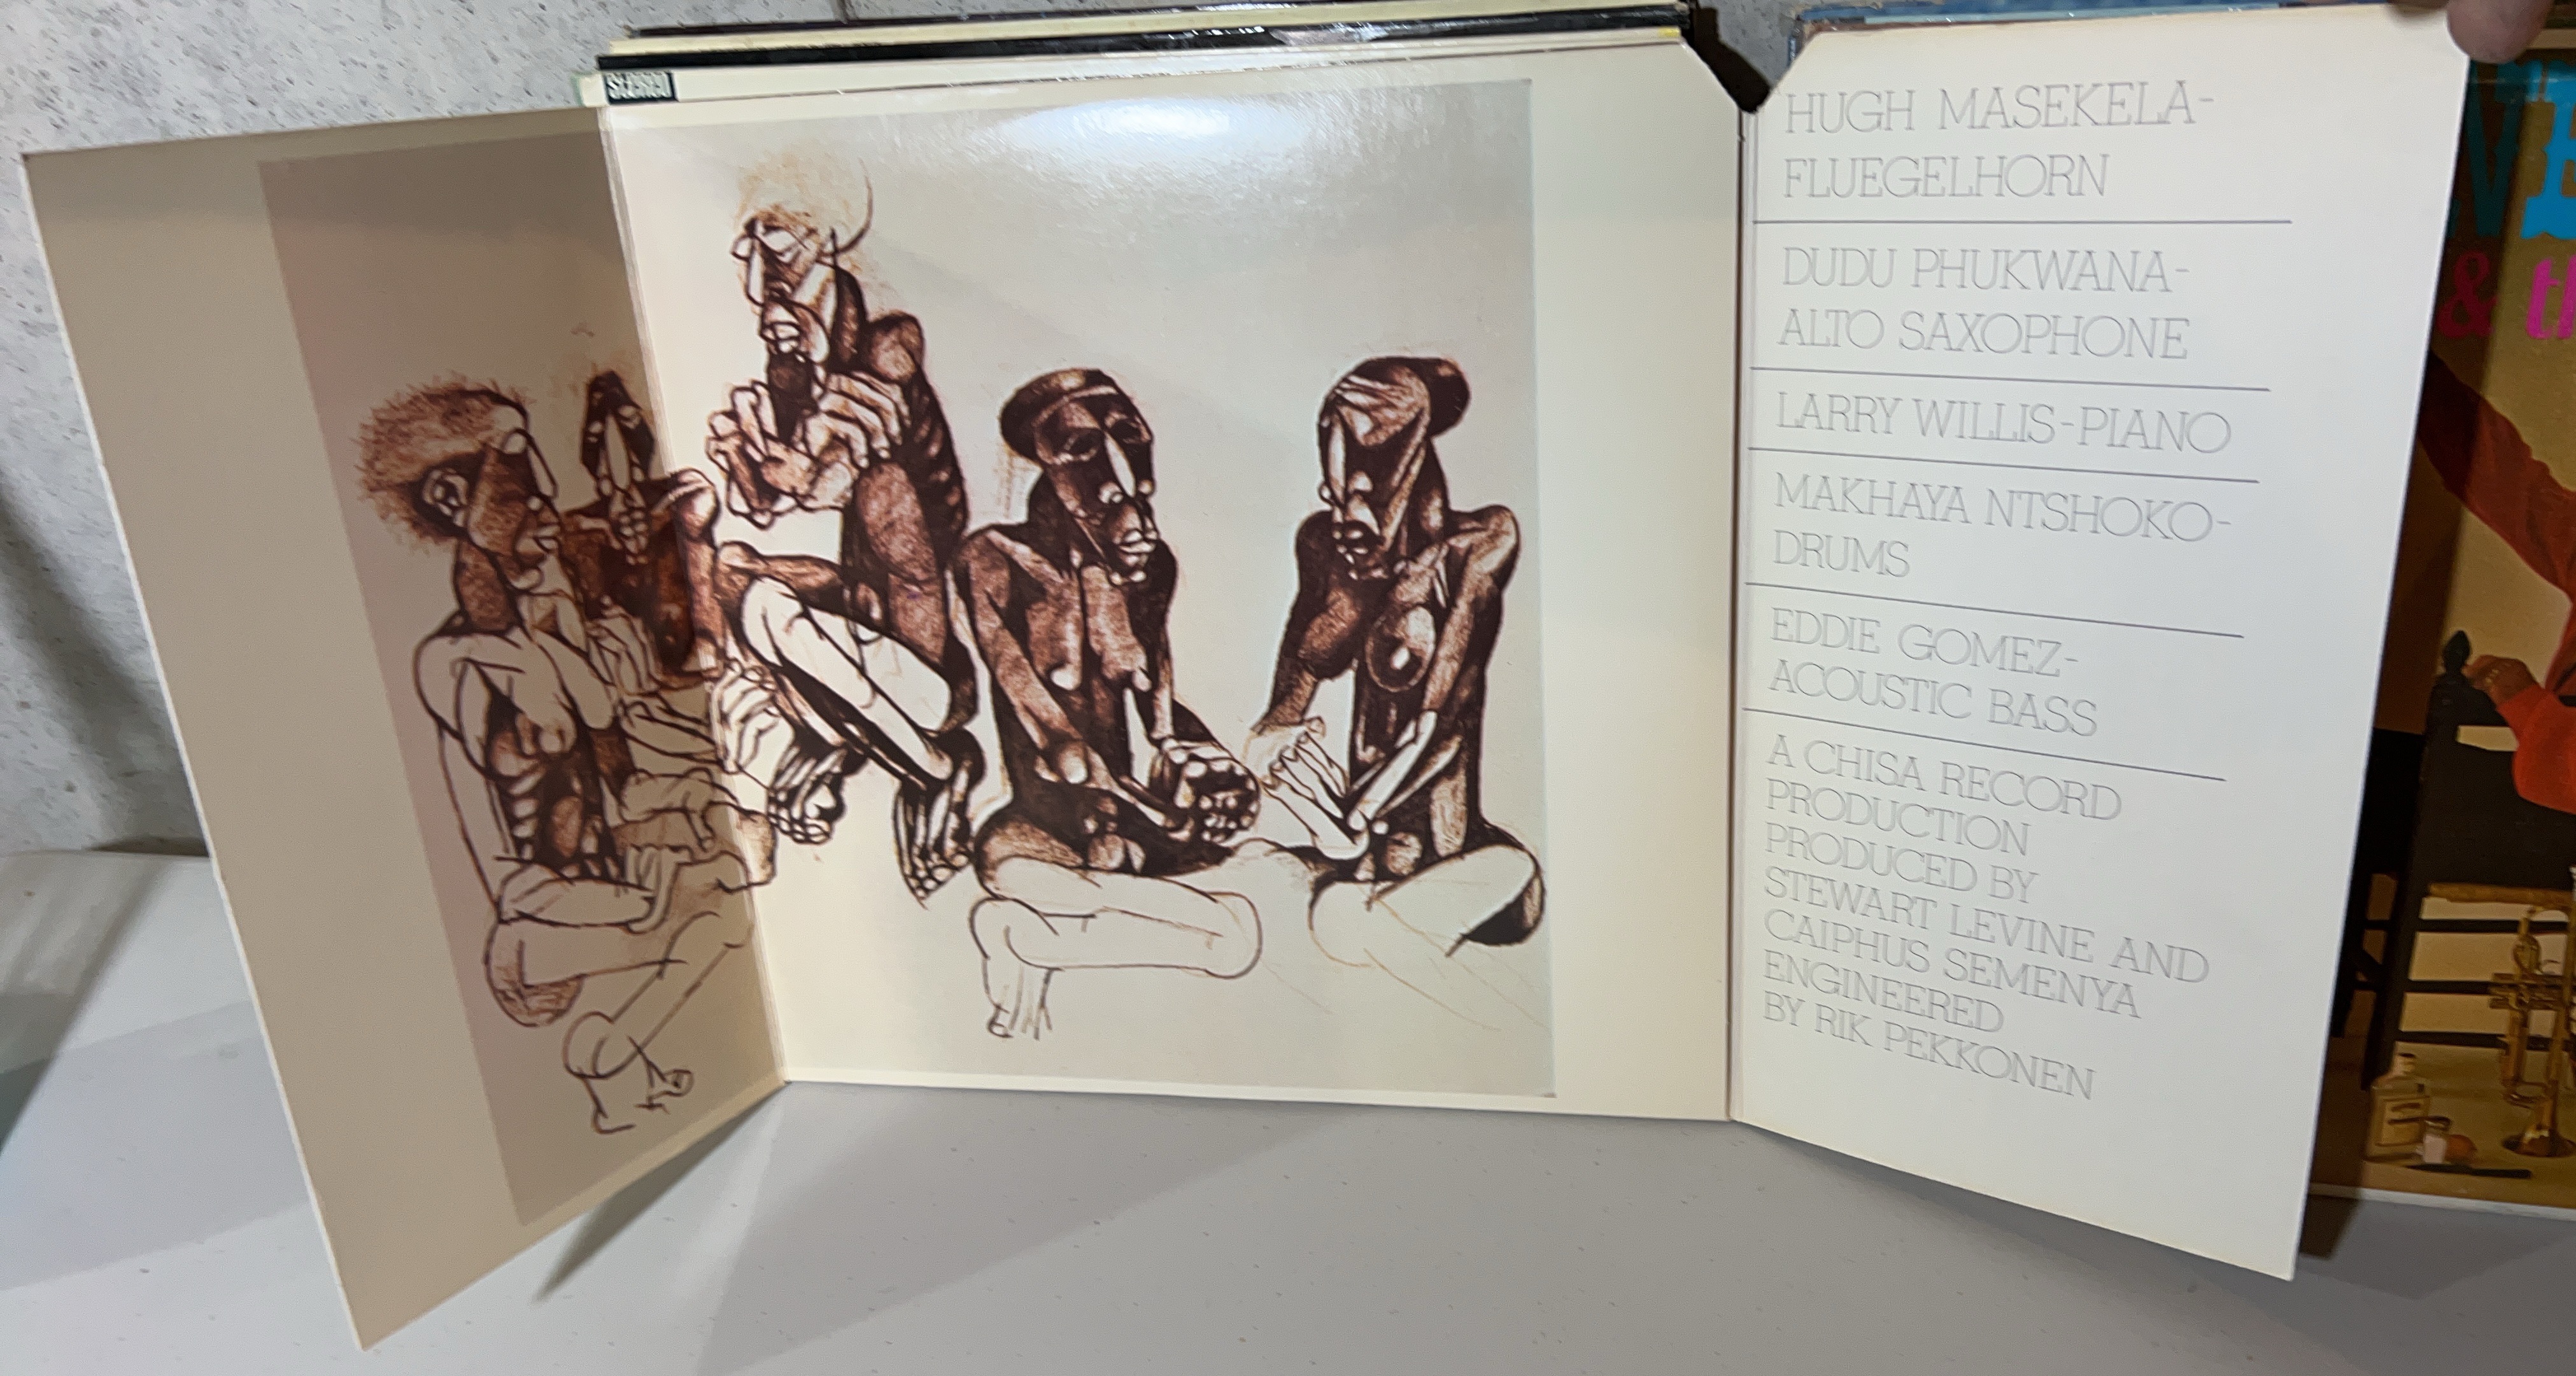 STEREO
HUGH MASEKELA-
FLUEGELHORN
DUDU PHUKWANA-
ALTO SAXOPHONE
LARRY WILLIS-PIANO
MAKHAYA NTSHOKO-
DRUMS
EDDIE GOMEZ-
ACOUSTIC BASS
A CHISA RECORD
PRODUCTION
PRODUCED BY
STEWART LEVINE AND
CAIPHUS SEMENYA
ENGINEERED
BY RIK PEKKONEN